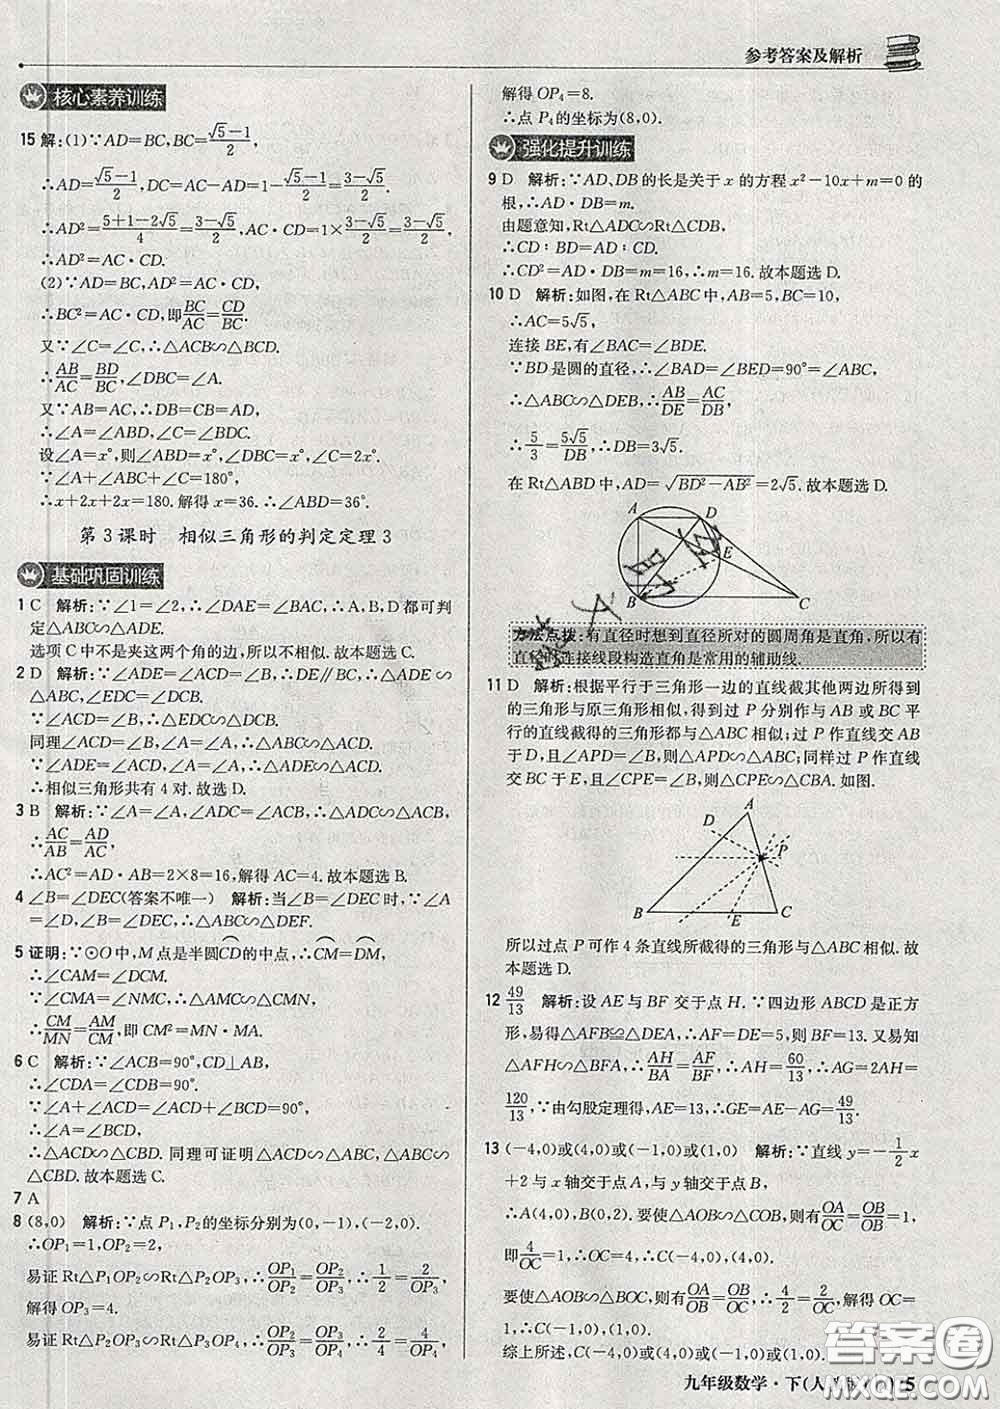 参考答案及解析
核心素养训练
15 解:(1)∵AD=BC,BC=(√5-1)/2,
∴AD=(√5-1)/2,DC=AC-AD=1-(√5-1)/2=(3-√5)/2.
∴AD²=(5+1-2√5)/4=(3-√5)/2,AC·CD=1×(3-√5)/2=(3-√5)/2,
∴AD²=AC·CD.
(2)∵AD=BC,AD²=AC·CD,
∴BC²=AC·CD,即BC/AC=CD/BC.
又∵∠C=∠C,∴△ACB∽△BCD.
∴AB/AC=BD/BC,∠DBC=∠A.
又∵AB=AC,∴DB=CB=AD,
∴∠A=∠ABD,∠C=∠BDC.
设∠A=x°,则∠ABD=x°,∠DBC=x°,∠C=2x°.
∵∠A+∠ABC+∠C=180°,
∴x+2x+2x=180.解得x=36.∴∠ABD=36°.
第3课时 相似三角形的判定定理3
基础巩固训练
1 C 解析:∵∠1=∠2,∴∠DAE=∠BAC,∴A,B,D都可判
定△ABC∽△ADE.
选项C中不是夹这两个角的边,所以不相似.故选C.
2 D 解析:∵∠ADE=∠ACD=∠B,∴DE∥BC,∴△ADE∽
△ABC,∠EDC=∠DCB,
∵∠ACD=∠B,∴△EDC∽△DCB.
同理∠ACD=∠B,∠A=∠A,∴△ABC∽△ACD.
∵∠ADE=∠ACD,∠A=∠A,∴△ADE∽△ACD.
∴相似三角形共有4对.故选D.
3 B 解析:∵∠A=∠A,∠ADC=∠ACB,∴△ADC∽△ACB,
∴AC/AB=AD/AC,
∴AC²=AD·AB=2×8=16,解得AC=4.故本题选B.
4 ∠B=∠DEC(答案不唯一) 解析:当∠B=∠DEC时,∵∠A
=∠D,∠B=∠DEC,∴△ABC∽△DEF.
5 证明:∵⊙O中,M点是半圆CD的中点,∴CM=DM,
∴∠CAM=∠DCM.
∵∠CMA=∠NMC,∴△AMC∽△CMN,
∴CM/MN=AM/CM,即CM²=MN·MA.
6 C 解析:∵∠ACB=90°,CD⊥AB,
∴∠CDA=∠CDB=90°.
∵∠A+∠ACD=∠ACD+∠BCD=90°,
∴∠A=∠BCD,
∴△ACD∽△CBD.同理可证明△ACD∽△ABC,△ABC∽
△CBD.故本题选C.
7 A
8 (8,0) 解析:∵点P₁,P₂的坐标分别为(0,-1),(-2,0).
∴OP₁=1,OP₂=2,
易证Rt△P₁OP₂∽Rt△P₂OP₃,∴OP₁/OP₂=OP₂/OP₃,∴1/2=2/OP₃,
解得OP₃=4.
易证Rt△P₂OP₃∽Rt△P₃OP₄,∴OP₂/OP₃=OP₃/OP₄,∴2/4=4/OP₄,
解得OP₄=8.
∴点P₄的坐标为(8,0).
强化提升训练
9 D 解析:∵AD,DB的长是关于x的方程x²-10x+m=0的
根,∴AD·DB=m.
由题意知,Rt△ADC∽Rt△CDB,
∴CD:BD=AD:CD.
∴CD²=AD·DB=m=16,∴m=16.故本题选D.
10 D 解析:如图,在Rt△ABC中,AB=5,BC=10,
∴AC=5√5,
连接BE,有∠BAC=∠BDE.
∵BD是圆的直径,∴∠BAD=∠BED=90°=∠ABC,
∴△ABC∽△DEB,∴AB/DE=AC/DB,
∴5/3=5√5/DB,∴DB=3√5.
在Rt△ABD中,AD=√(BD²-AB²)=2√5.故本题选D.
A
D
E
B
C
方法点拨:有直径时想到直径所对的圆周角是直角,所以有
直径时连接线段构造直角是常用的辅助线.
11 D 解析:根据平行于三角形一边的直线截其他两边所得到
的三角形与原三角形相似,得到过P分别作与AB或BC平
行的直线截得的三角形都与△ABC相似;过P作直线交AB
于D,且∠APD=∠B,则△APD∽△ABC;同样过P作直线
交BC于E,且∠CPE=∠B,则△CPE∽△CBA.如图.
A
D
P
B
E
C
所以过点P可作4条直线所截得的三角形与△ABC相似.故
本题选D.
12 49/13 解析:设AE与BF交于点H.∵四边形ABCD是正方
形,易得△AFB≌△DEA,∴AF=DE=5,则BF=13.又易知
△AFH∽△BFA,∴AH/BA=AF/BF,∴AH=60/13,∴AG=2AH=
120/13,∵由勾股定理得,AE=13,∴GE=AE-AG=49/13.
13 (-4,0)或(4,0)或(-1,0)或(1,0) 解析:∵直线y=-1/2x
+2与x轴交于点A,与y轴交于点B,
∴A(4,0),B(0,2).要使△AOB∽△COB,则有OA/OC=OB/OB=1,
即4/OC=1,∴OC=4,∴C(-4,0),(4,0).
要使△AOB∽△BOC,则有OA/OB=OB/OC,∴4/2=2/OC,解得OC=
1,∴C(-1,0),(1,0).
综上所述,C(-4,0)或(4,0)或(-1,0)或(1,0).
九年级数学·下(人 5
答案圈
MXQE.COM